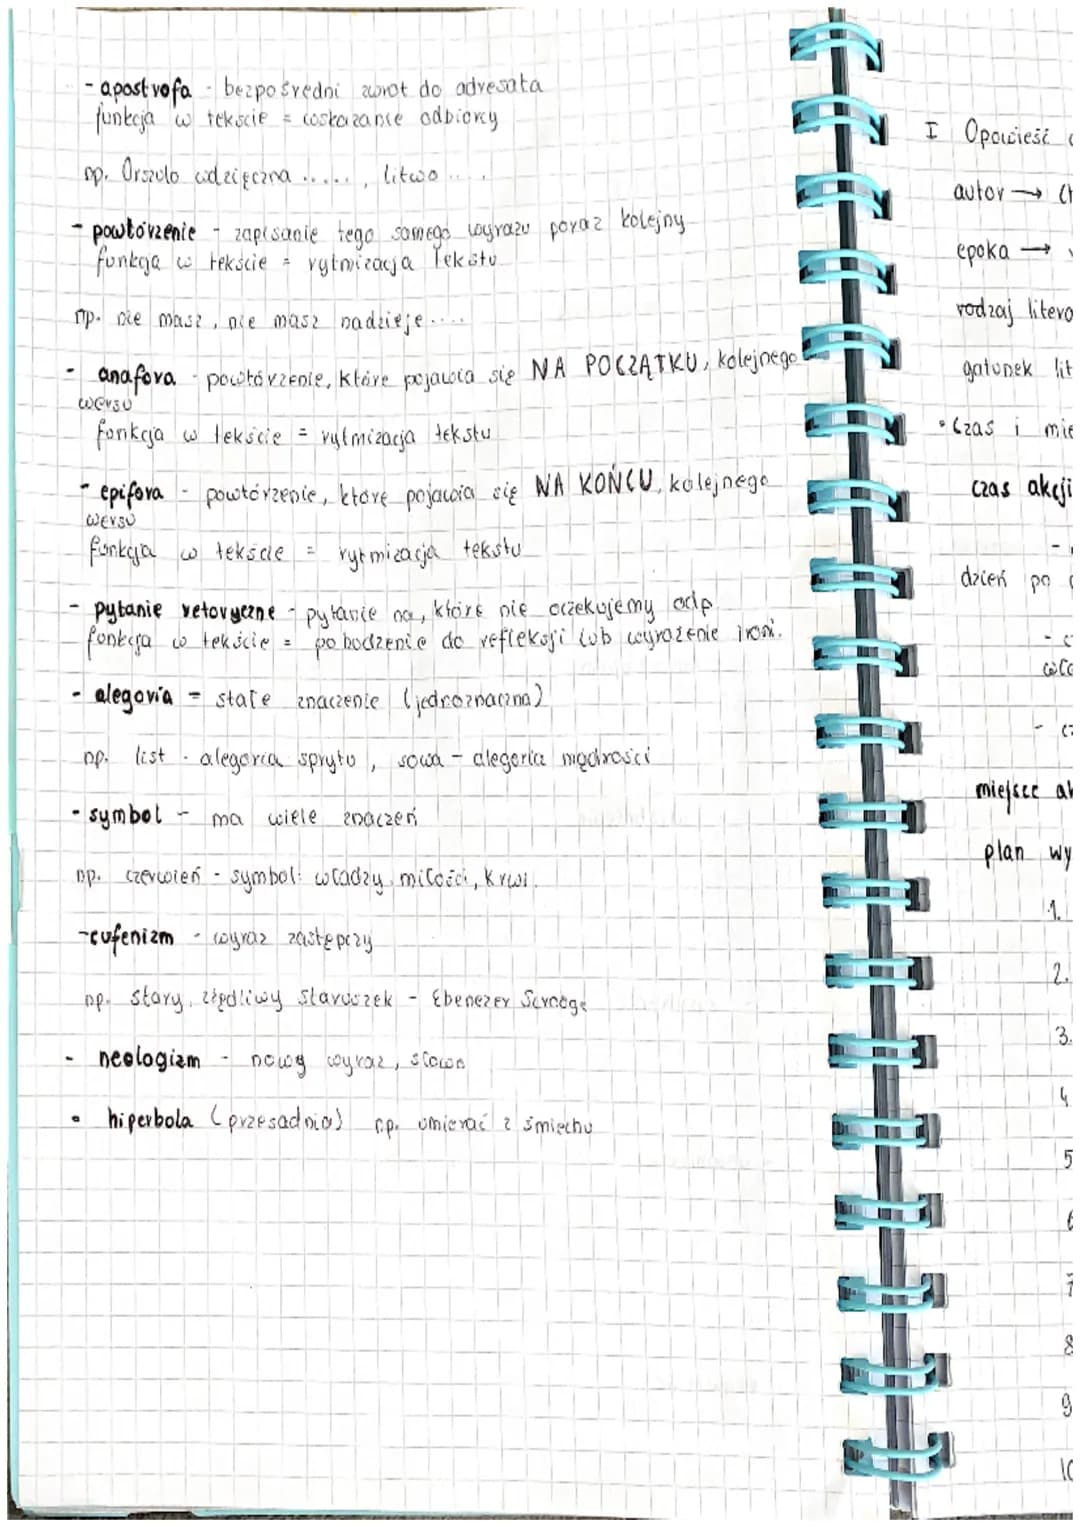 - apostrofa - bezpośredni zwrot do adresata
funkcja w tekście = wskazanie odbiorcy
np. Orszulo wdzięczna ....., litwo ....
- powtórzenie - zapisanie tego samego wyrazu poraz kolejny
funkcja w tekście = rytmizacja tekstu
np. nie masz, nie masz nadzieje ....
- anafora - powtórzenie, które pojawia się NA POCZĄTKU, kolejnego
wersu
funkcja w tekście = rytmizacja tekstu
- epifora - powtórzenie, które pojawia się NA KOŃCU, kolejnego
wersu
funkcja w tekście = rytmizacja tekstu
- pytanie retoryczne - pytanie na, które nie oczekujemy odp.
funkcja w tekście = pobudzenie do refleksji lub wyrażenie ironi.
- alegoria = stałe znaczenie (jednoznaczna)
np. list - alegoria sprytu, sowa - alegoria mądrości
- symbol - ma wiele znaczeń
np. czerwień - symbol: władzy, miłości, krwi.
- eufenizm - wyraz zastępczy
np. stary, zrzędliwy staruszek - Ebenezer
- neologizm - nowy wyraz, słowo
• hiperbola (przesadnia) np. umierać z śmiechu
I Opowieść
autor →
epoka →
rodzaj
gatunek
• Czas i
czas akcji
-
dzień po
-
-
miejsce
plan
1.
2.
3.
4
5
6
7
8
9
10